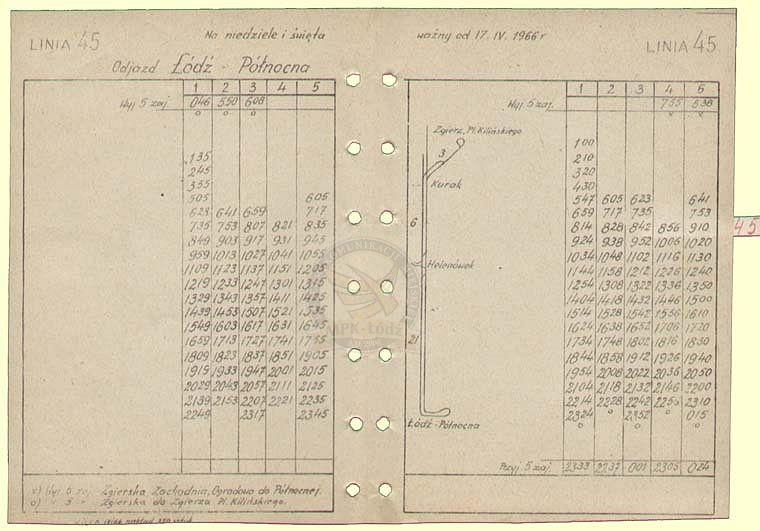 LINIA 45
Na niedziele i święta
ważny od 17. IV. 1966 r
LINIA 45
Odjazd Łódź - Północna
1 2 3 4 5
Wyj 5 zaj. 046 550 608
o o o
135
245
355
505 605
623 641 659 717
735 753 807 821 835
849 903 917 931 945
959 1013 1027 1041 1055
1109 1123 1137 1151 1205
1219 1233 1247 1301 1315
1329 1343 1357 1411 1425
1439 1453 1507 1521 1535
1549 1603 1617 1631 1645
1659 1713 1727 1741 1755
1809 1823 1837 1851 1905
1919 1933 1947 2001 2015
2029 2043 2057 2111 2125
2139 2153 2207 2221 2235
2249 2317 2345
x) Wyj. 5 zaj. Zgierska, Zachodnia, Ogrodowa do Północnej.
o) " 5 " Zgierska do Zgierza Pl. Kilińskiego.
1 2 3 4 5
Wyj. 5 zaj. 755 538
x x
Zgierz, Pl. Kilińskiego
3
Kurak
6
Helenówek
21
Łódź - Północna
100
210
320
430
547 605 623 641
659 717 735 753
814 828 842 856 910
924 938 952 1006 1020
1034 1048 1102 1116 1130
1144 1158 1212 1226 1240
1254 1308 1322 1336 1350
1404 1418 1432 1446 1500
1514 1528 1542 1556 1610
1624 1638 1652 1706 1720
1734 1748 1802 1816 1830
1844 1858 1912 1926 1940
1954 2008 2022 2036 2050
2104 2118 2132 2146 2200
2214 2228 2242 2256 2310
2324 o 2352 o 015
o o o
Przyj. 5 zaj. 2333 2237 001 2305 024
45
MPK-Łódź